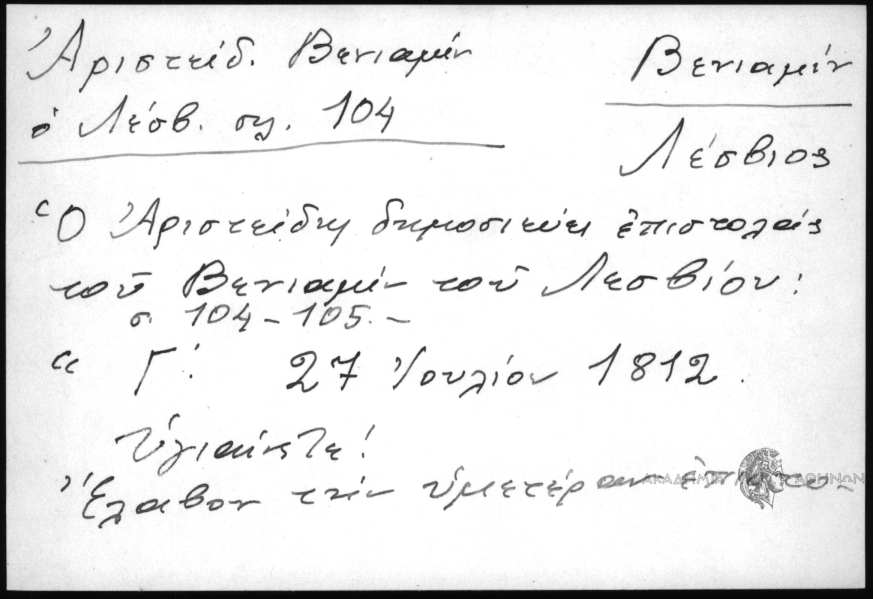 Ἀριστείδ. Βενιαμίν
ὁ Λέσβ. σελ. 104
Βενιαμίν
Λέσβιος
Ὁ Ἀριστείδης δημοσιεύει ἐπιστολάς
τοῦ Βενιαμίν τοῦ Λεσβίου:
σ. 104-105.-
"Γ'. 27 Ἰουλίου 1812.
Ὑγιαίνετε!
Ἔλαβον τήν ὑμετέραν ἐπιστο-
ΑΚΑΔΗΜΙΑ ΑΘΗΝΩΝ